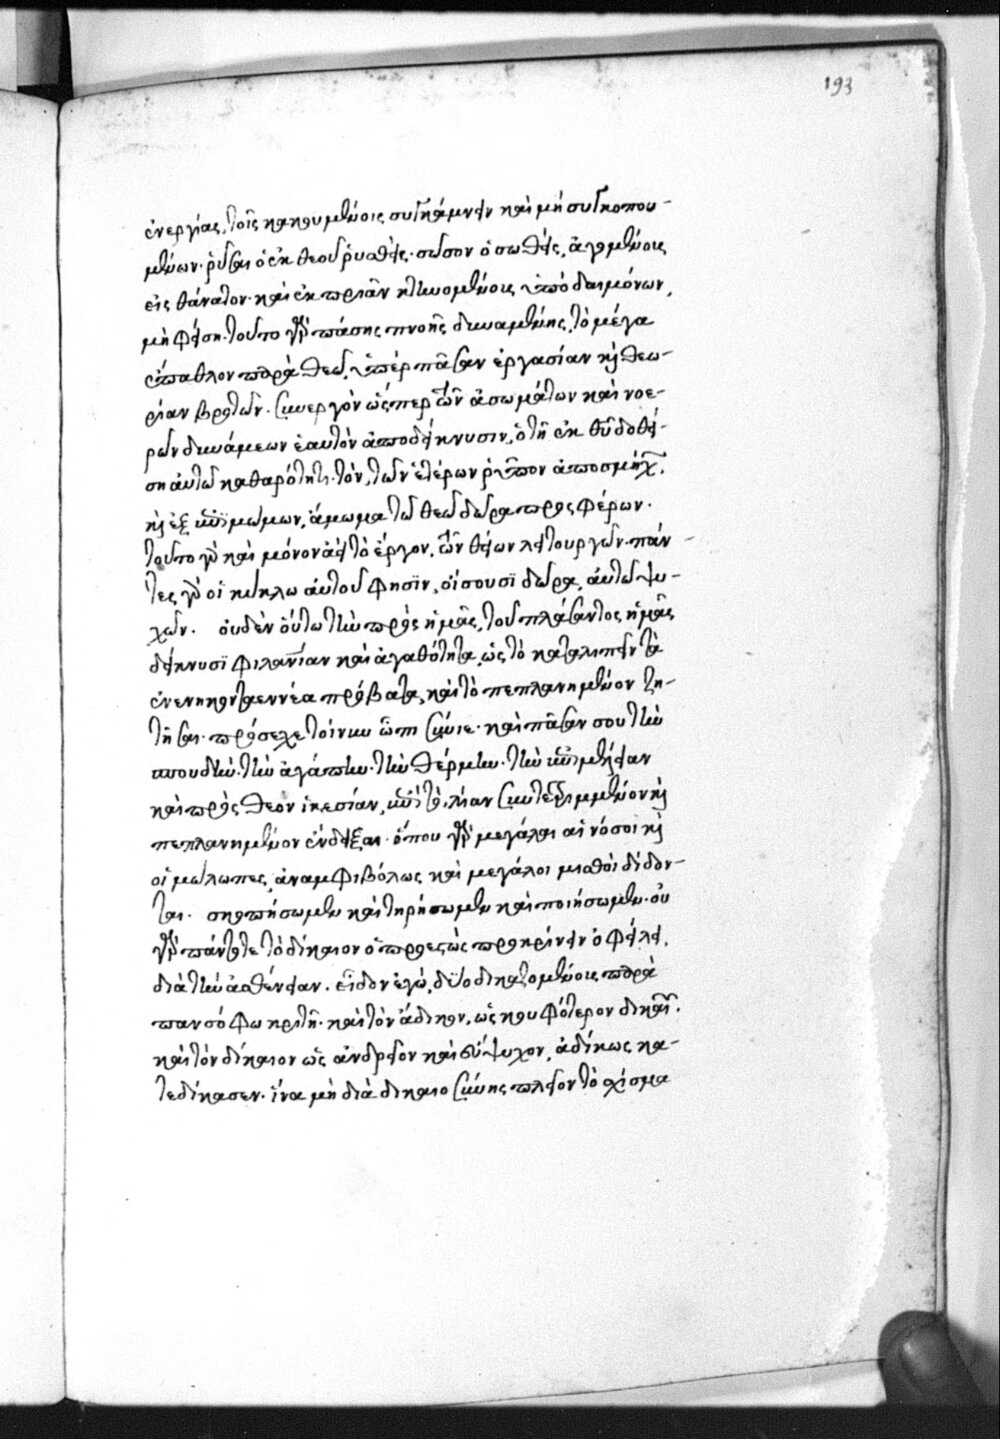 193
ἐνεργίας, τοῖς κακουμένοις συγκάμνειν καὶ μὴ συγκοπου-
μένων. ῥύσαι ὁ ἐκ θεοῦ ῥυσθείς. σῶσον ὁ σωθείς, ἀγομένους
εἰς θάνατον. καὶ ἐκπριᾶν κτεινομένους ὑπὸ δαιμόνων,
μὴ φείση. τοῦτο γὰρ πάσης πνοῆς δυναμένης, τὸ μέγα
ἔπαθλον παρὰ θεῶ, ὑπὲρ πᾶσαν ἐργασίαν κὶ θεω-
ρίαν βροτῶν. συνεργὸν ὥσπερ τῶν ἀσωμάτων καὶ νοε-
ρῶν δυνάμεων ἑαυτὸν ἀποδείκνυσιν, ὁ τῆ ἐκ θεοῦ δοθεί-
ση αὐτῶ καθαρότητι. τὸν, τῶν ἑτέρων ῥύπον ἀποσμήχων,
κὶ ἐξ μώμων, ἄμωμα τῶ θεῶ δῶρα προσφέρων.
τοῦτο γὰρ καὶ μόνον ἀεὶ τὸ ἔργον, τῶν θείων λειτουργῶν. πάν-
τες γὰρ οἱ κύκλω αὐτοῦ φησϊν, οἴσουσϊ δῶρα, αὐτῶ ψυ-
χῶν. οὐδὲν οὕτω τὴν πρὸς ἡμᾶς, τοῦ πλάσαντος ἡμᾶς
δείκνυσϊ φιλανίαν καὶ ἀγαθότητα, ὡς τὸ καταλιπεῖν τὰ
ἐνενηκονταεννέα πρόβατα, καὶ τὸ πεπλανημένον ζη-
τῆσαι. πρόσεχε τοίνυν ὦ πι κύριε. καὶ πᾶσάν σου τὴν
σπουδὴν. τὴν ἀγάπην. τὴν θέρμην. τὴν ἐπιμέλειαν
καὶ πρὸς θεὸν ἱκεσίαν, ὑπὲρ τὸ, λίαν συντετριμμένον κὶ
πεπλανημένον ἔνδειξαι. ὅπου γὰρ μεγάλαι αἱ νόσοι κὶ
οἱ μώλωπες, ἀναμφιβόλως καὶ μεγάλοι μισθοὶ δίδον-
ται. σκοπήσωμεν καὶ τηρήσωμεν καὶ ποιήσωμεν. οὐ
γὰρ πάντοτε τὸ δίκαιον ὁ προεστὼς προκρίνειν ὀφείλει,
διὰ τὴν ἀσθένειαν. εἶδον ἐγὼ, δύο δικαζομένους παρὰ
πανσόφω κριτῆ. καὶ τὸν ἄδικον, ὡς κουφότερον δικαι.
καὶ τὸν δίκαιον ὡς ἀνδρεῖον καὶ εὔψυχον, ἀδίκως κα-
τεδίκασεν. ἵνα μὴ διὰ δικαιοσύνης πλεῖον τὸ σχίσμα